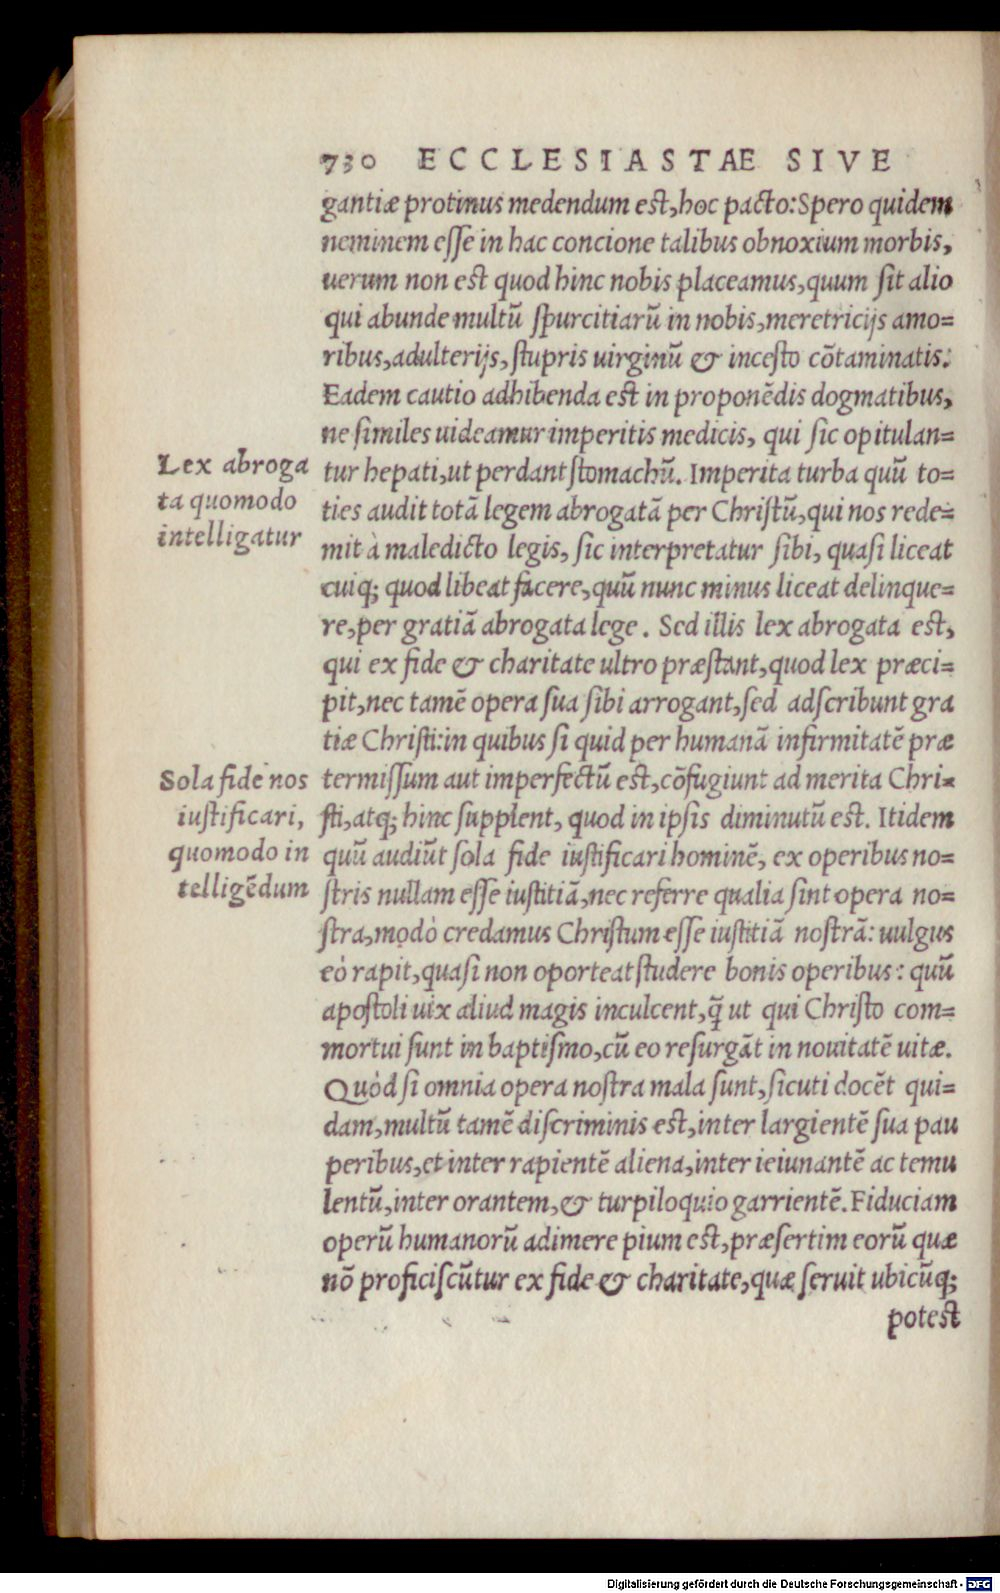 730 ECCLESIASTAE SIVE
gantiæ protinus medendum est, hoc pacto: Spero quidem
neminem esse in hac concione talibus obnoxium morbis,
uerum non est quod hinc nobis placeamus, quum sit alio
qui abunde multū spurcitiarū in nobis, meretricijs amo=
ribus, adulterijs, stupris uirginū & incesto cōtaminatis.
Eadem cautio adhibenda est in proponēdis dogmatibus,
ne similes uideamur imperitis medicis, qui sic opitulan=
tur hepati, ut perdant stomachū. Imperita turba quū to=
ties audit totā legem abrogatā per Christū, qui nos rede=
mit à maledicto legis, sic interpretatur sibi, quasi liceat
cuiq; quod libeat facere, quū nunc minus liceat delinque=
re, per gratiā abrogata lege. Sed illis lex abrogata est,
qui ex fide & charitate ultro præstant, quod lex præci=
pit, nec tamē opera sua sibi arrogant, sed adscribunt gra
tiæ Christi: in quibus si quid per humanā infirmitatē præ
termissum aut imperfectū est, cōfugiunt ad merita Chri=
sti, atq; hinc supplent, quod in ipsis diminutū est. Itidem
quū audiūt sola fide iustificari hominē, ex operibus no=
stris nullam esse iustitiā, nec referre qualia sint opera no=
stra, modò credamus Christum esse iustitiā nostrā: uulgus
eò rapit, quasi non oporteat studere bonis operibus: quū
apostoli uix aliud magis inculcent, q̃ ut qui Christo com=
mortui sunt in baptismo, cū eo resurgāt in nouitatē uitæ.
Quòd si omnia opera nostra mala sunt, sicuti docēt qui=
dam, multū tamē discriminis est, inter largientē sua pau
peribus, et inter rapientē aliena, inter ieiunantē ac temu
lentū, inter orantem, & turpiloquio garrientē. Fiduciam
operū humanorū adimere pium est, præsertim eorū quæ
nō proficiscūtur ex fide & charitate, quæ seruit ubicūq;
potest
Lex abroga
ta quomodo
intelligatur
Sola fide nos
iustificari,
quomodo in
telligēdum
Digitalisierung gefördert durch die Deutsche Forschungsgemeinschaft - DFG